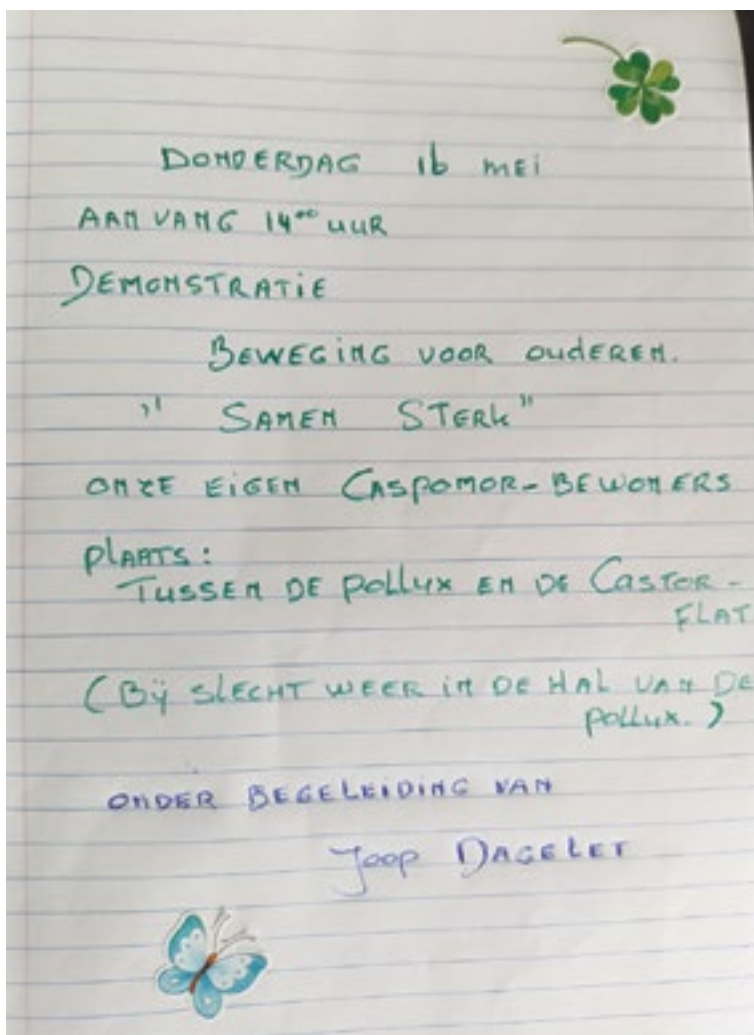 DONDERDAG 16 MEI
AANVANG 14⁰⁰ UUR
DEMONSTRATIE
BEWEGING VOOR OUDEREN.
" SAMEN STERK"
ONZE EIGEN CASPOMOR-BEWONERS
PLAATS:
TUSSEN DE POLLUX EN DE CASTOR-
FLAT
(BIJ SLECHT WEER IN DE HAL VAN DE
POLLUX.)
ONDER BEGELEIDING VAN
Joop DAGELET